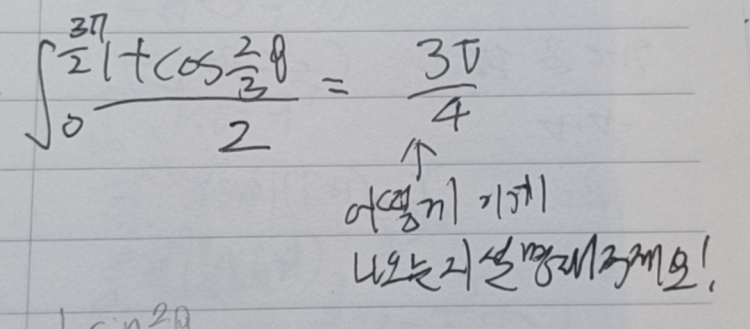 ∫₀^{3π/2} (1+cos 2/3 θ)/2 = 3π/4
↑
어떻게 이게
나오는지 설명해주세요!
sin²θ